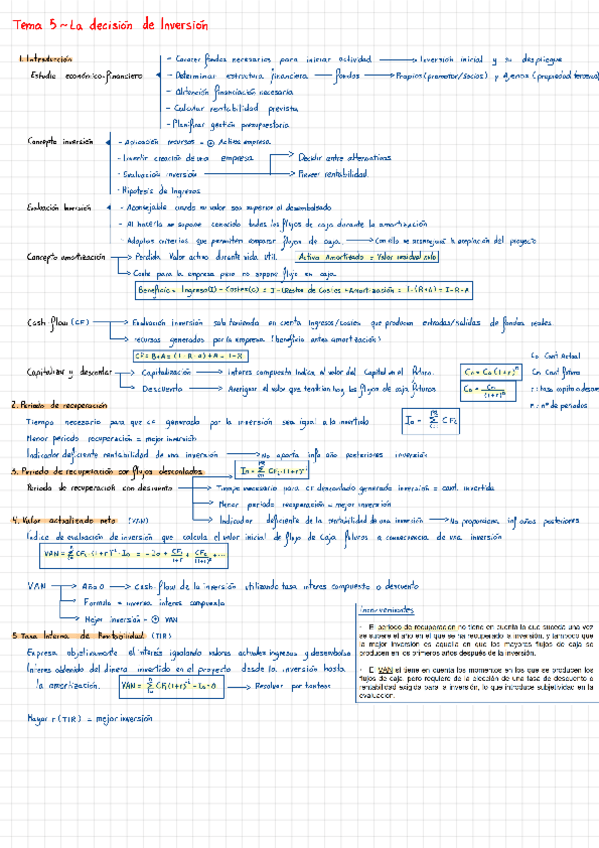 Tema 5 ~ La decisión de Inversión
1. Introducción
Estudio económico-financiero
- Conocer fondos necesarios para iniciar actividad → Inversión inicial y su despliegue
- Determinar estructura financiera → fondos → Propios (promotor/socios) y Ajenos (propiedad terceros)
- Obtención financiación necesaria
- Calcular rentabilidad prevista
- Planificar gestión presupuestaria
Concepto inversión
- Aplicación recursos = ⊕ Activo empresa
- Invertir creación de una empresa → Decidir entre alternativas
- Evaluación inversión → Prever rentabilidad
- Hipótesis de Ingresos
Evaluación Inversión
- Aconsejable cuando su valor sea superior al desembolsado
- Al hacerla se supone conocido todos los flujos de caja durante la amortización
- Adoptar criterios que permitan comparar flujos de caja → Con ello se aconsejará la aceptación del proyecto
Concepto amortización → Pérdida Valor activo durante vida útil. Activo Amortizado = Valor residual nulo
→ Coste para la empresa pero no supone flujo en caja
Beneficio = Ingreso(I) - Costes(C) = I-(Restos de Costes + Amortización) = I-(R+A) = I-R-A
Cash flow (CF) → Evaluación inversión solo teniendo en cuenta ingresos/costes que producen entradas/salidas de fondos reales
→ recursos generados por la empresa (beneficio antes amortización)
CF = B+A = (I-R-A)+A = I-R
Capitalizar y descontar → Capitalización → interés compuesto indica el valor del Capital en el futuro. Cn = Co(1+r)^n
→ Descuento → Averiguar el valor que tendrían hoy los flujos de caja futuros Co = Cn/(1+r)^n
Co Cant Actual
Cn Cant futura
n = nº de periodos
2. Periodo de recuperación
Tiempo necesario para que CF generado por la inversión sea igual a lo invertido
Menor periodo recuperación = mejor inversión
Indicador deficiente rentabilidad de una inversión → No aporta info año posteriores inversión
3. Periodo de recuperación con flujos descontados
Periodo de recuperación con descuento → Tiempo necesario para CF descontado generado inversión = cant. invertida
→ Menor periodo recuperación = mejor inversión
→ Indicador deficiente de la rentabilidad de una inversión → No proporciona info años posteriores
4. Valor actualizado neto (VAN)
Índice de evaluación de inversión que calcula el valor inicial de flujo de caja futuros a consecuencia de una inversión
VAN → Año 0 → Cash flow de la inversión utilizando tasa interés compuesto o descuento
→ Formula = inversa interés compuesto
→ Mejor inversión = ⊕ VAN
5. Tasa Interna de Rentabilidad (TIR)
Expresa objetivamente el interés igualando valores actuales ingresos y desembolso
Interés obtenido del dinero invertido en el proyecto desde la inversión hasta
la amortización. → Resolver por tanteos
Mayor r (TIR) = mejor inversión
Inconvenientes
- El periodo de recuperación no tiene en cuenta lo que suceda una vez
se supere el año en el que se ha recuperado la inversión, y tampoco que
la mejor inversión es aquella en que los mayores flujos de caja se
producen en os primeros años después de la inversión.
- El VAN sí tiene en cuenta los momentos en los que se producen los
flujos de caja, pero requiere de la elección de una tasa de descuento o
rentabilidad exigida para la inversión, lo que introduce subjetividad en la
evaluación.